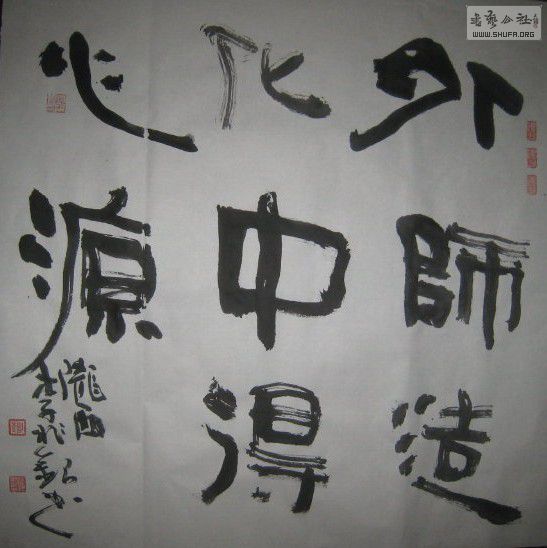 外師造
化中得
心源
隴西
書法公社
WWW.SHUFA.ORG